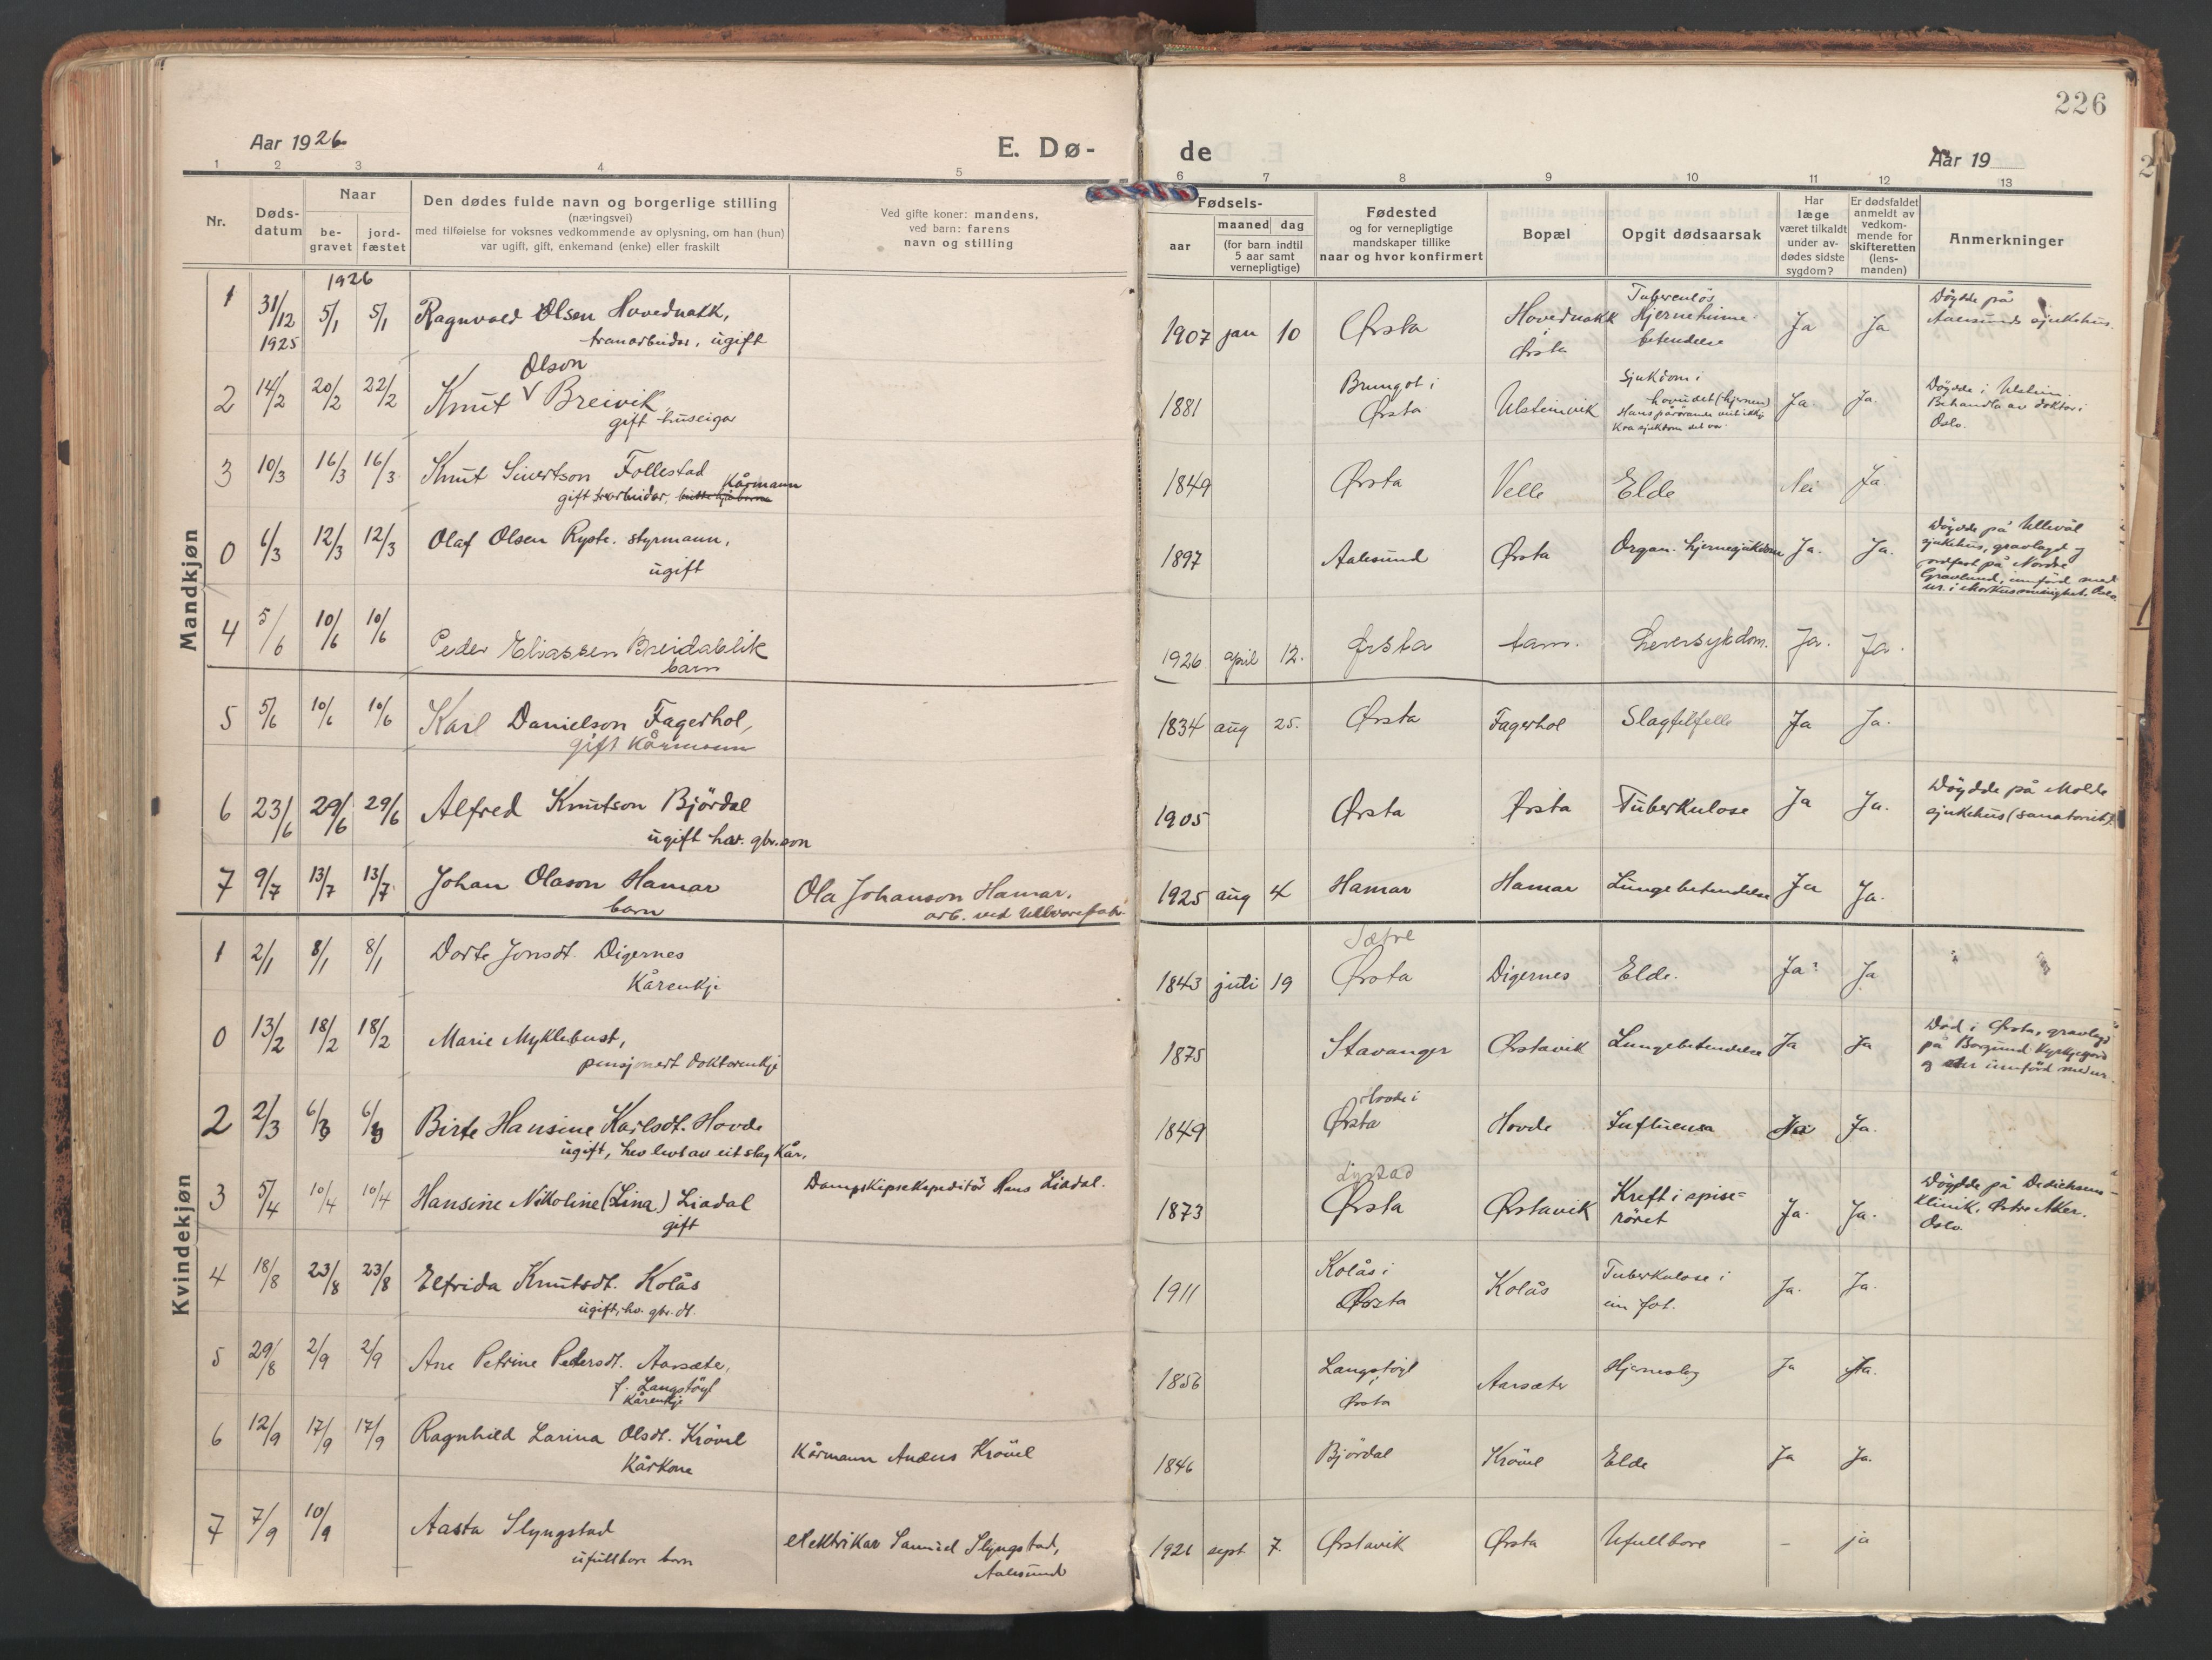 226
Aar 1926
E. Dø-
de
Aar 19
1 2 3 4 5 6 7 8 9 10 11 12 13
Nr.
Døds-
datum
Naar
be-
gravet
jord-
fæstet
Den dødes fulde navn og borgerlige stilling
(næringsvei)
med tilføielse for voksnes vedkommende av oplysning, om han (hun)
var ugift, gift, enkemand (enke) eller fraskilt
Ved gifte koner: mandens,
ved barn: farens
navn og stilling
Fødsels-
aar
maaned dag
(for barn indtil
5 aar samt
vernepligtige)
Fødested
og for vernepligtige
mandskaper tillike
naar og hvor konfirmert
Bopæl
Opgit dødsaarsak
Har
læge
været tilkaldt
under av-
dødes sidste
sygdom?
Er dødsfaldet
anmeldt av
vedkom-
mende for
skifteretten
(lens-
manden)
Anmerkninger
Mandkjøn
1926
1 31/12 5/1 5/1 Ragnvald Olsen Hovednakk,
1925
tranarbeider, ugift
1907 jan 10 Ørsta
Hovednakk
i
Ørsta
Tuberculøs
Hjernehinne-
betendelse
Ja Ja
Døydde på
Aalesunds sjukehus.
Olson
2 14/2 20/2 22/2 Knut V Breivik
gift huseigar
1881
Brungot i
Ørsta
Ulsteinvik
Sjukdom i
hovudet (hjernen)
Hans pårørande veit ikkje
kva sjukdom det var.
Ja. Ja.
Døydde i Ulstein.
Behandla av doktor i
Oslo.
3 10/3 16/3 16/3 Knut Sivertson Follestad
Kårmann
gift
1849 Ørsta Velle Elde Nei Ja
0 6/3 12/3 12/3 Olaf Olsen Ryste. styrmann,
ugift
1897 Aalesund Ørsta Organ. hjernesjukdom Ja. Ja.
Døydde på Ullevål
sjukehus, gravlagd og
jordfest på Nordre
Gravlund, innførd med
nr. i Markus menighet, Oslo
4 5/6 10/6 10/6 Peder Eliassen Breidablik
barn
1926 april 12. Ørsta sam. Leversykdom. Ja. Ja.
5 5/6 10/6 10/6 Karl Danielson Fagerhol,
gift Kårmann
1834 aug 25. Ørsta Fagerhol Slagtilfelle Ja Ja.
6 23/6 29/6 29/6 Alfred Knutson Björdal
ugift hav. gbr.son
1905 Ørsta Ørsta Tuberkulose Ja Ja.
Døydde på Molde
sjukehus (sanatoriet).
7 9/7 13/7 13/7 Johan Olason Hamar
barn
Ola Johanson Hamar.
arb. ved Ullvarefabr.
1925 aug 4 Hamar Hamar Lungebetendelse Ja Ja.
Kvindekjøn
1 2/1 8/1 8/1 Dorte Jonsdt. Digernes
Kårenkje
1843 juli 19
Sætre
Ørsta
Digernes Elde. Ja. Ja
0 13/2 18/2 18/2 Marie Myklebust,
pensjonert doktorenkje
1875 Stavanger Ørstavik Lungebetendelse Ja Ja
Død i Ørsta, gravlagd
på Borgund Kyrkjegard
og der innførd med nr.
2 2/3 6/3 6/3 Birte Hansine Karlsdt. Hovde
ugift, hev levt av eit slag Kår.
1849
Hovde i
Ørsta
Hovde Influensa Nei Ja.
3 5/4 10/4 10/4 Hansine Nikoline (Lina) Liadal
gift
Dampskipsekspeditör Hans Liadal.
1873
Ørsta
Ørstavik
Kreft i spise=
röret
Ja. Ja.
Døydde på Dedichens
klinik, Østre Aker.
Oslo.
4 18/8 23/8 23/8 Elfrida Knutsdt. Kolås
ugift, hv. gbr. dt.
1911
Kolås i
Ørsta
Kolås
Tuberkulose i
ein fot.
Ja. Ja.
5 29/8 2/9 2/9 Ane Petrine Pedersdt. Aarsæter,
f. Langstöyl
Kårenkje
1856
Langstöyl
i
Ørsta
Aarsæter Hjerneslag Ja Ja.
6 12/9 17/9 17/9 Ragnhild Larina Olsdt. Krövel
Kårkone
Kårmann Anders Krövel
1846 Björdal Krövel Elde Ja Ja.
7 7/9 10/9 Aasta Slyngstad
ufullbore barn
elektrikar Samuel Slyngstad,
Aalesund
1926 sept 7. Ørstavik Ørsta Ufullbore - ja